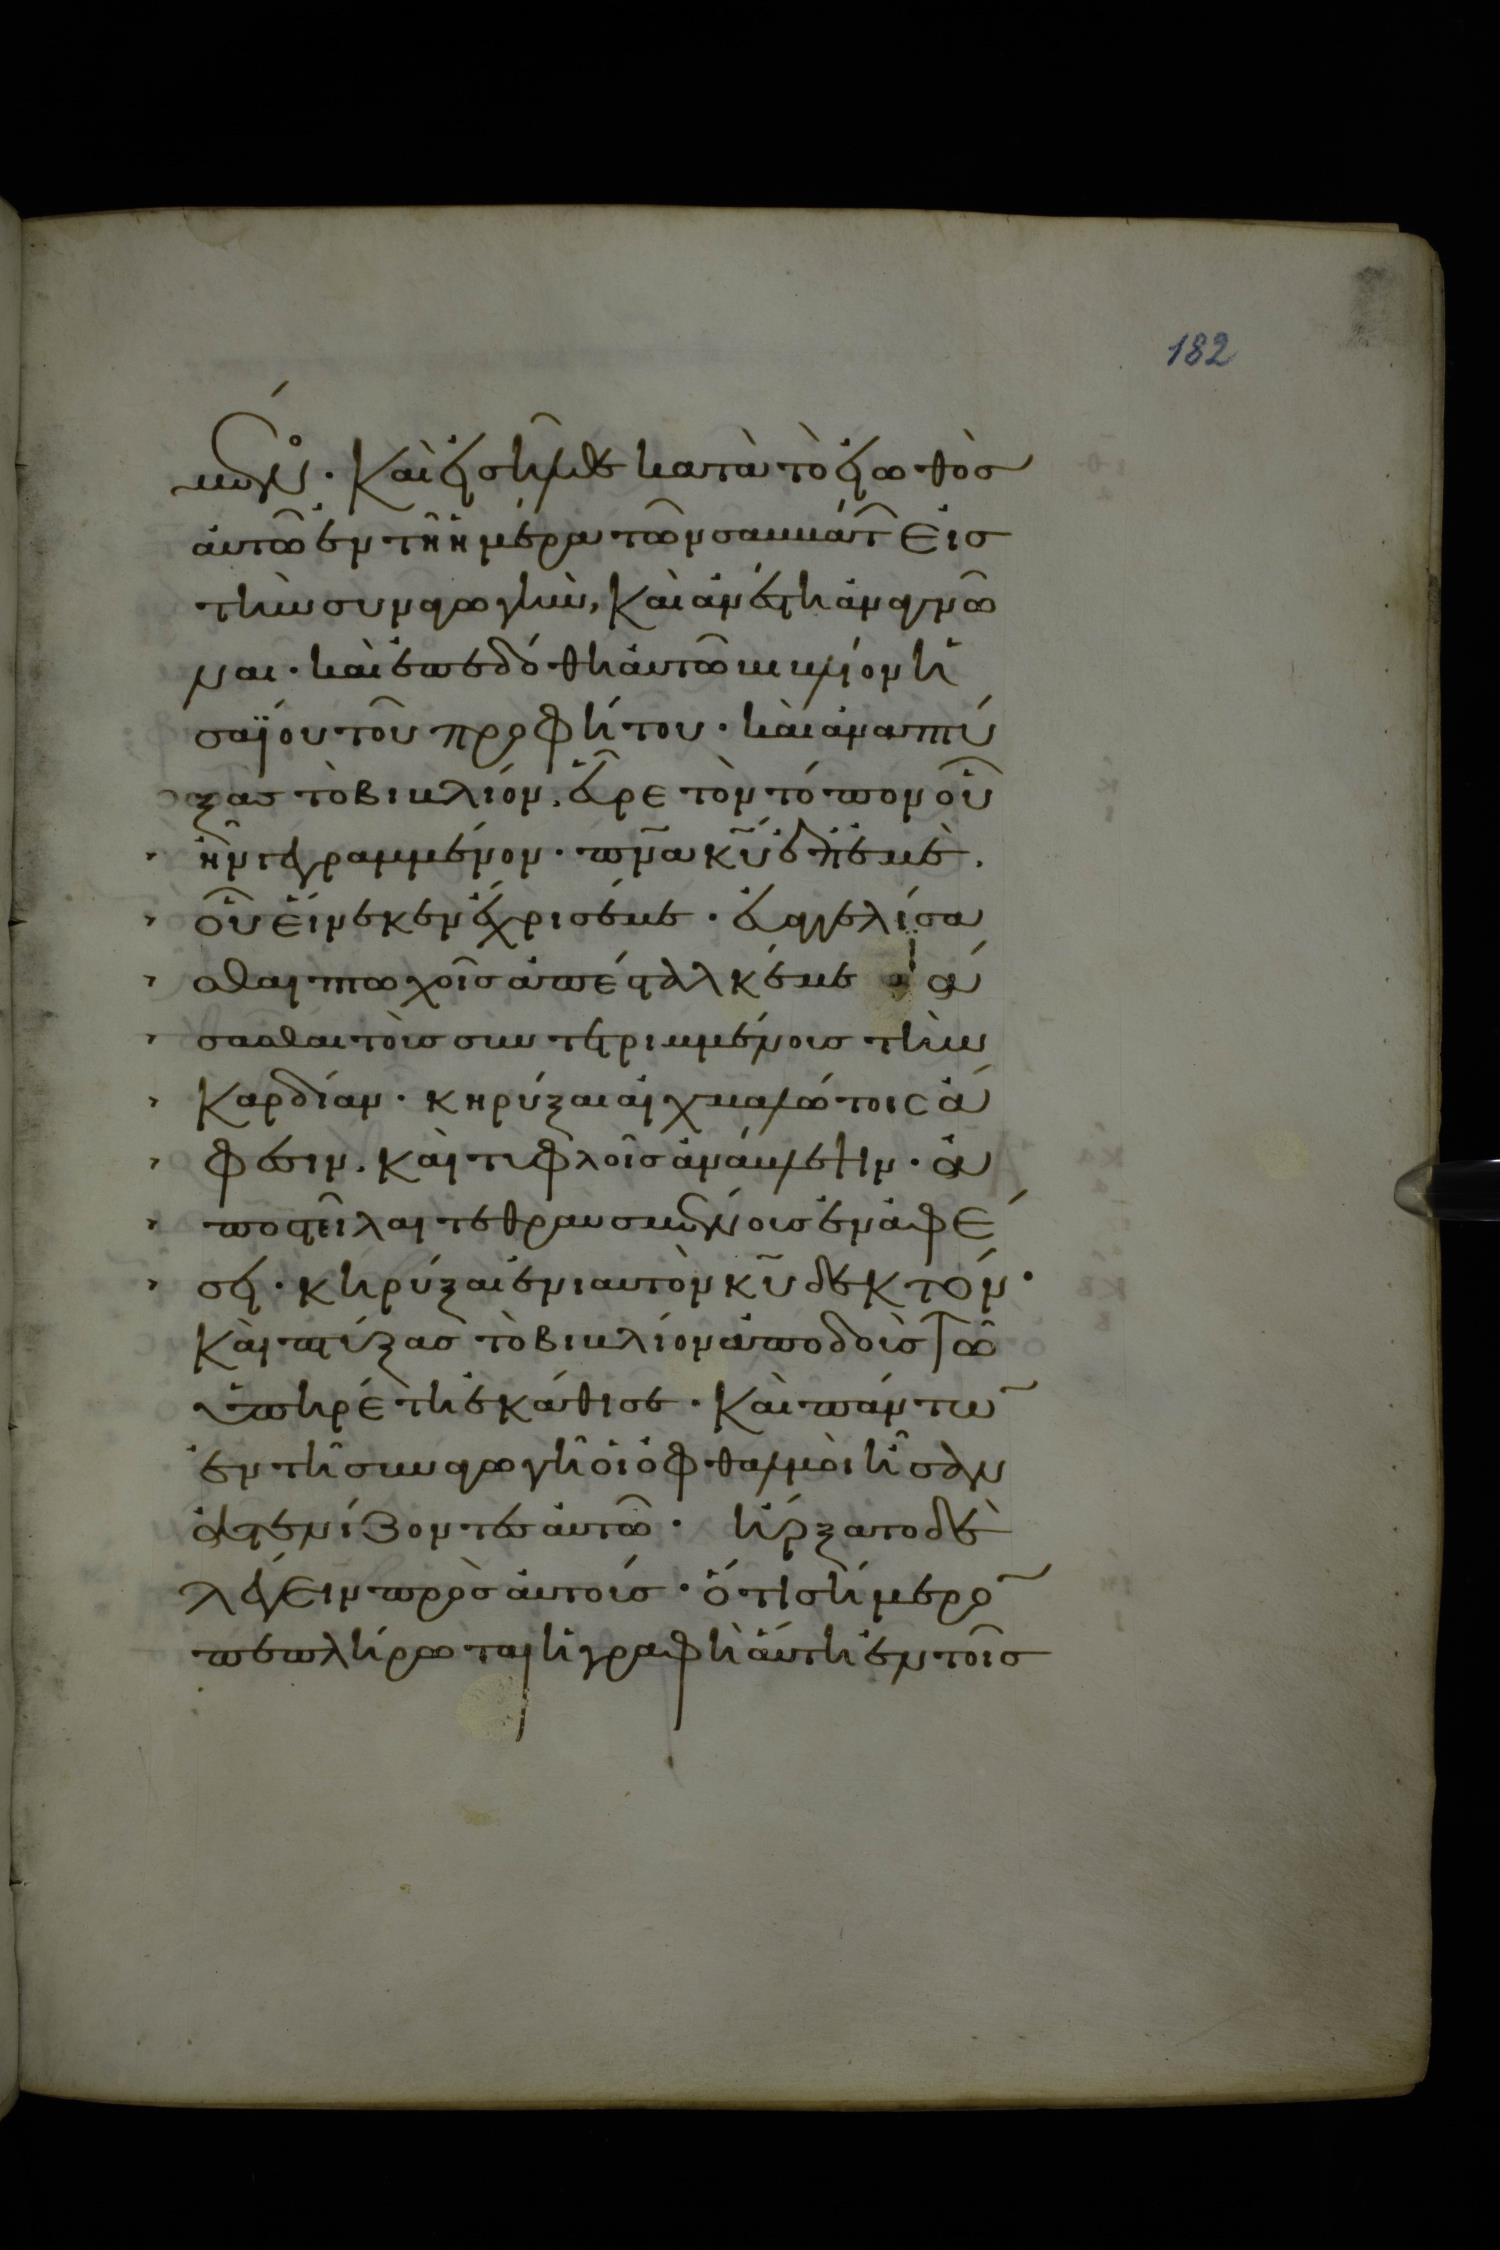 182
μένος· Καὶ εἰσῆλθε κατὰ τὸ εἰωθὸς
αὐτῶ ἐν τῆ ἡμέρα τῶν σαββάτ εἰς
τὴν συναγωγὴν, καὶ ἀνέστη ἀναγνῶ
ναι· καὶ ἐπεδόθη αὐτῶ βιβλίον ἡ
σαΐου τοῦ προφήτου· καὶ ἀναπτύ
ξας τὸ βιβλίον, εὗρε τὸν τόπον οὗ
ἦν γεγραμμένον· πνᾱ κῡ ἐπ' ἐμὲ.
οὗ εἵνεκεν ἔχρισέ με· εὐαγγελίσα
σθαι πτωχοῖς ἀπέσταλκέ με ἰά
σασθαι τοὺς συντετριμμένους τὴν
καρδίαν· κηρύξαι αἰχμαλώτοις ἄ
φεσιν. καὶ τυφλοῖς ἀνάβλεψιν· ἀ
ποστεῖλαι τεθραυσμένους ἐν ἀφέ
σει· κηρύξαι ἐνιαυτὸν κῡ δεκτόν·
Καὶ πτύξας τὸ βιβλίον ἀποδοὺς τῶ
ὑπηρέτη ἐκάθισε· Καὶ πάντω
ἐν τῆ συναγωγῆ οἱ ὀφθαλμοὶ ἦσαν
ἀτενίζοντες αὐτῶ· ἤρξατο δὲ
λέγειν πρὸς αὐτούς· ὅτι σήμερο
πεπλήρωται ἡ γραφὴ αὕτη ἐν τοῖς